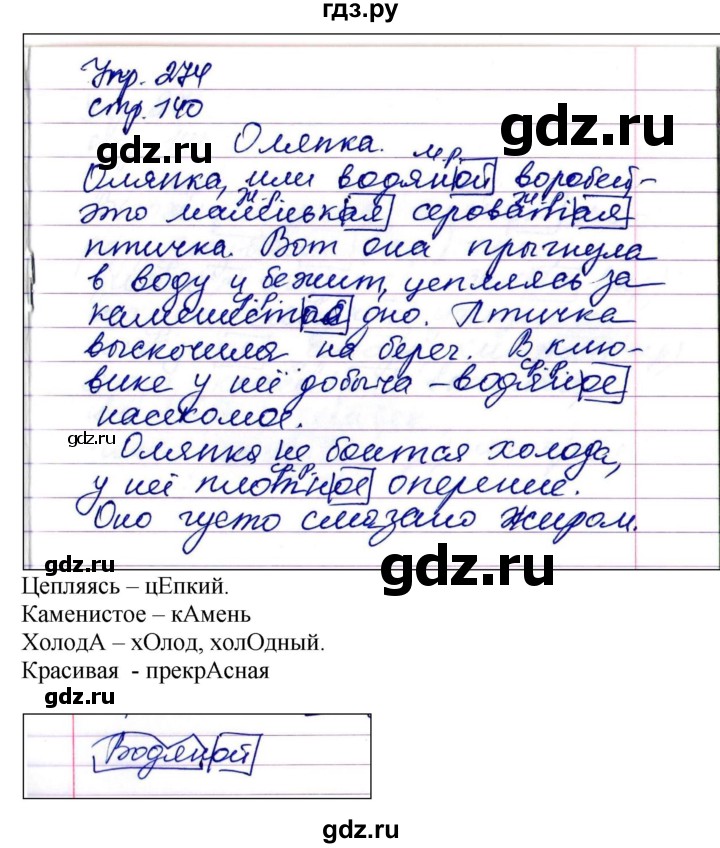 гдз.ру
Упр. 274
стр. 140
gdz.ru
Оляпка.
м.р.
Оляпка, или водяной воробей-
gdz.ru
ж.р. ж.р.
это маленькая сероватая
птичка. Вот она прыгнула
в воду и бежит, цепляясь за
ср.р.
каменистое дно. Птичка
выскочила на берег. В клю-
ср.р.
вике у неё добыча – водяное
gdz.ru
насекомое.
Оляпка не боится холода,
ср.р.
у неё плотное оперение.
Оно густо смазано жиром.
gdz.ru
gdz.ru
Цепляясь – цЕпкий.
Каменистое – кАмень
ХолодА – хОлод, холОдный.
Красивая - прекрАсная
gdz.ru
Водяной
gdz.ru